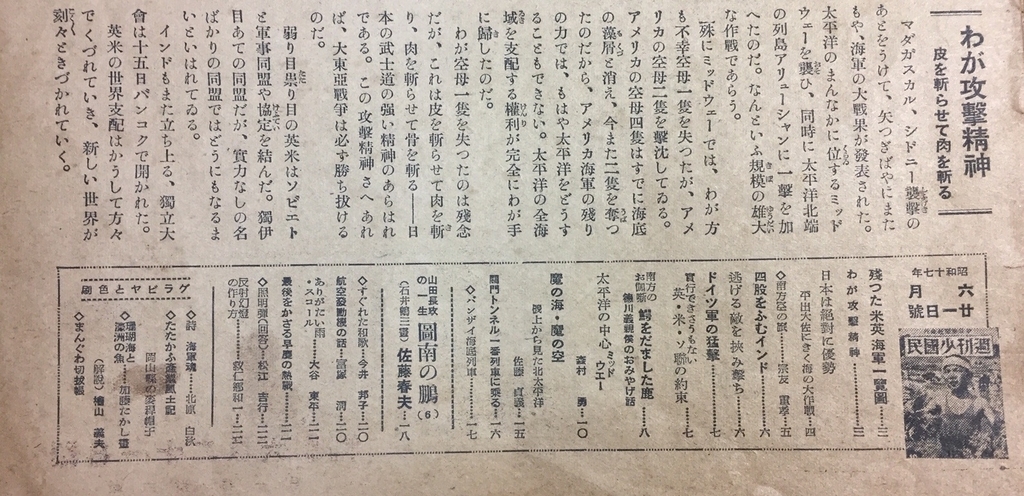 わが攻撃精神
皮を斬らせて肉を斬る
マダガスカル、シドニー襲撃の
あとをうけて、矢つぎばやにまた
もや、海軍の大戦果が発表された。
太平洋のまんなかに位するミッド
ウェーを襲ひ、同時に太平洋北端
の列島アリューシャンに一撃を加
へたのだ。なんといふ規模の雄大
な作戦であらう。
殊にミッドウェーでは、わが方
も不幸空母一隻を失つたが、アメ
リカの空母二隻を撃沈してゐる。
アメリカの空母四隻はすでに海底
の藻屑と消え、今また二隻を奪つ
たのだから、アメリカ海軍の残り
の力では、もはや太平洋をどうす
ることもできない。太平洋の全海
域を支配する權利が完全にわが手
に歸したのだ。
わが空母一隻を失つたのは残念
だが、これは皮を斬らせて肉を斬
り、肉を斬らせて骨を斬る――日
本の武士道の強い精神のあらはれ
である。この攻撃精神さへあれ
ば、大東亞戰爭は必ず勝ち抜ける
のだ。
弱り目祟り目の英米はソビエト
と軍事同盟や協定を結んだ。獨伊
目あての同盟だが、實力なしの名
ばかりの同盟ではどうにもなるま
いといはれてゐる。
インドもまた立ち上る、獨立大
會は十五日バンコクで開かれた。
英米の世界支配はかうして方々
でくづれていき、新しい世界が
刻々ときづかれていく。
昭和十七年
六月廿一日號
週刊少國民
残つた米英海軍一覽圖……二
わが攻撃精神……三
日本は絶對に優勢
平出大佐にきく海の大作戦…四
◇南方空の旅……五
四股をふむインド……六
逃げる敵を挾み撃ち……六
ドイツ軍の猛撃……七
實行できさうもない
英・米・ソ聯の約束……七
南方のお伽噺 鰐をだました鹿……八
徳川義親侯のおみやげ話
太平洋の中心 ミッドウェー
森村 勇…一〇
魔の海・魔の空
機上から見た北太平洋
佐藤 貞義…一五
關門トンネル一番列車に乗る…一六
◇バンザイ海底列車……一七
山田長政の一生 圖南の鵬(6)
(石井鶴三畫) 佐藤春夫…一八
◇すぐれた和歌…今井 邦子…二〇
航空發動機の話…富塚 清…二〇
ありがたい雨・スコール……大谷 東平…二一
最後をかざる早慶の熱戰……二一
◇照明彈(回答)…松江 吉行…二二
反射幻燈の作り方……救仁郷和一…二二
グラビヤと色刷
◇詩 海軍魂……北原 白秋
◇たたかふ産業風土記
岡山縣の麥稈帽子
◇珊瑚海と濠洲の魚……加藤たかし畫
◇まんぐわ切拔帳
(解説) 檜山 義夫